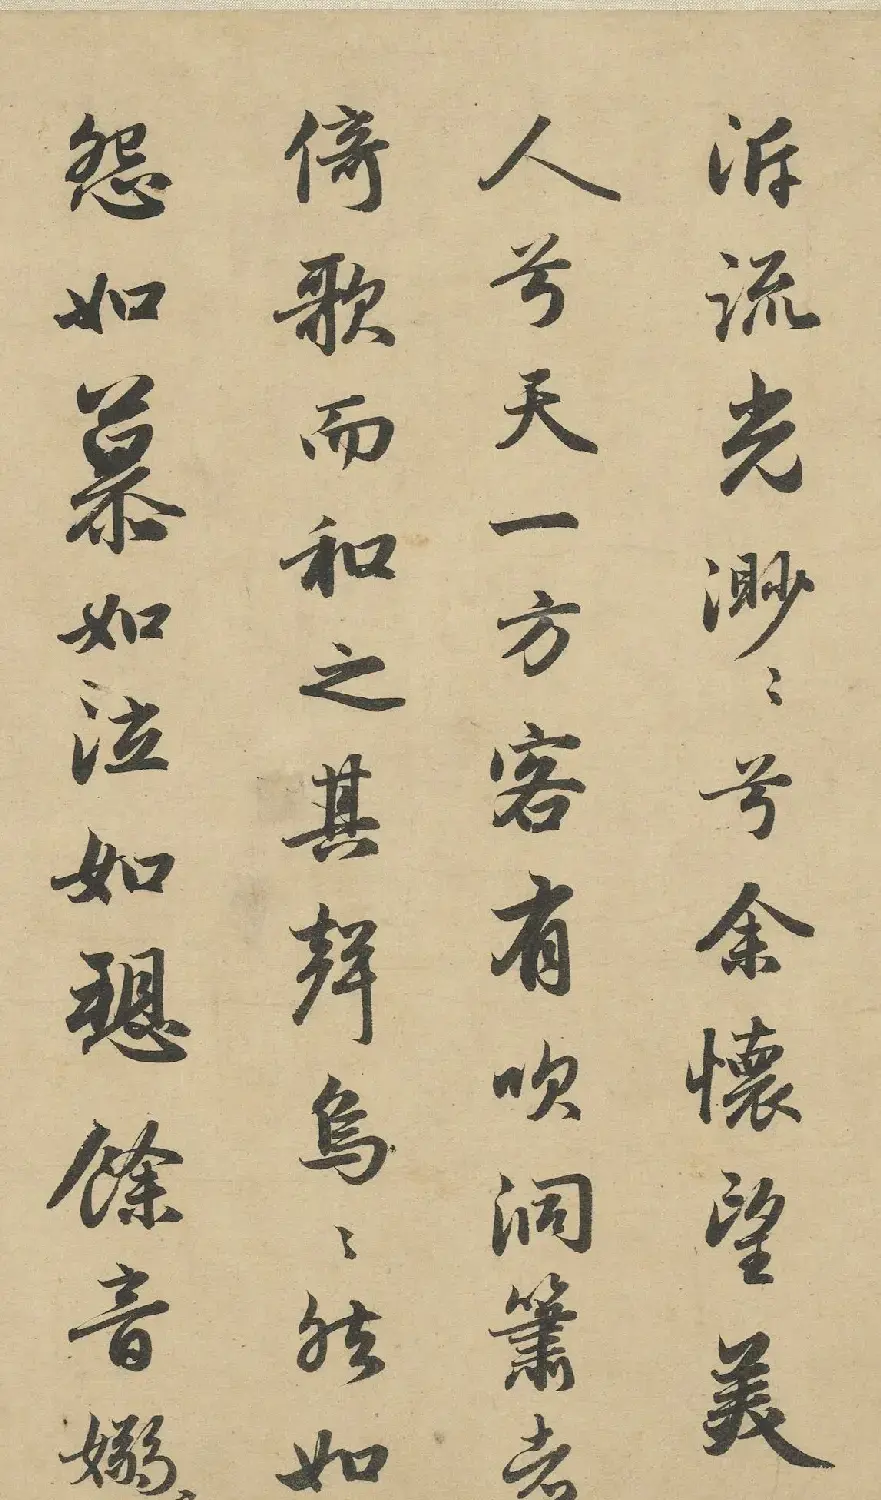 泝流光渺〻兮余懷望美
人兮天一方客有吹洞簫者
倚歌而和之其聲烏〻然如
怨如慕如泣如愬餘音嫋〻